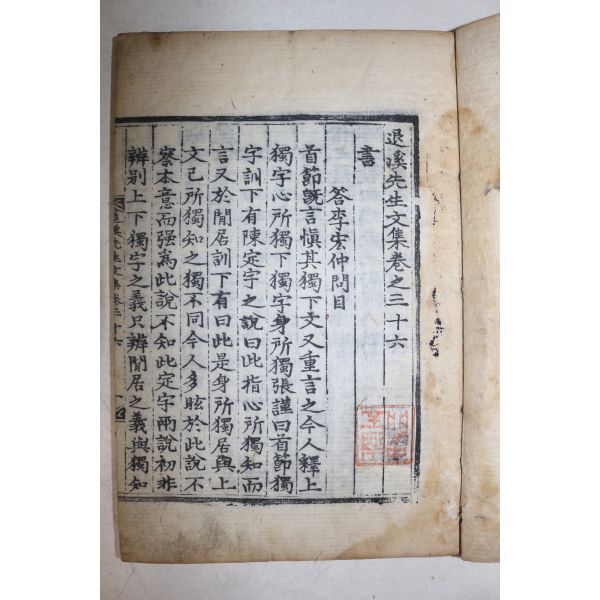 退溪先生文集卷之三十六
書
答李宏仲問目
首節旣言愼其獨下文又重言之今人釋上
獨字心所獨下獨字身所獨張謹曰首節獨
字訓下有陳定字之說曰此指心所獨知而
言又於閒居訓下有曰此是身所獨居與上
文己所獨知之獨不同今人多眩於此說不
察本意而强爲此說不知此定字兩說初非
辨别上下獨字之義只辨閒居之義與獨知
退溪先生文集卷三十六
一